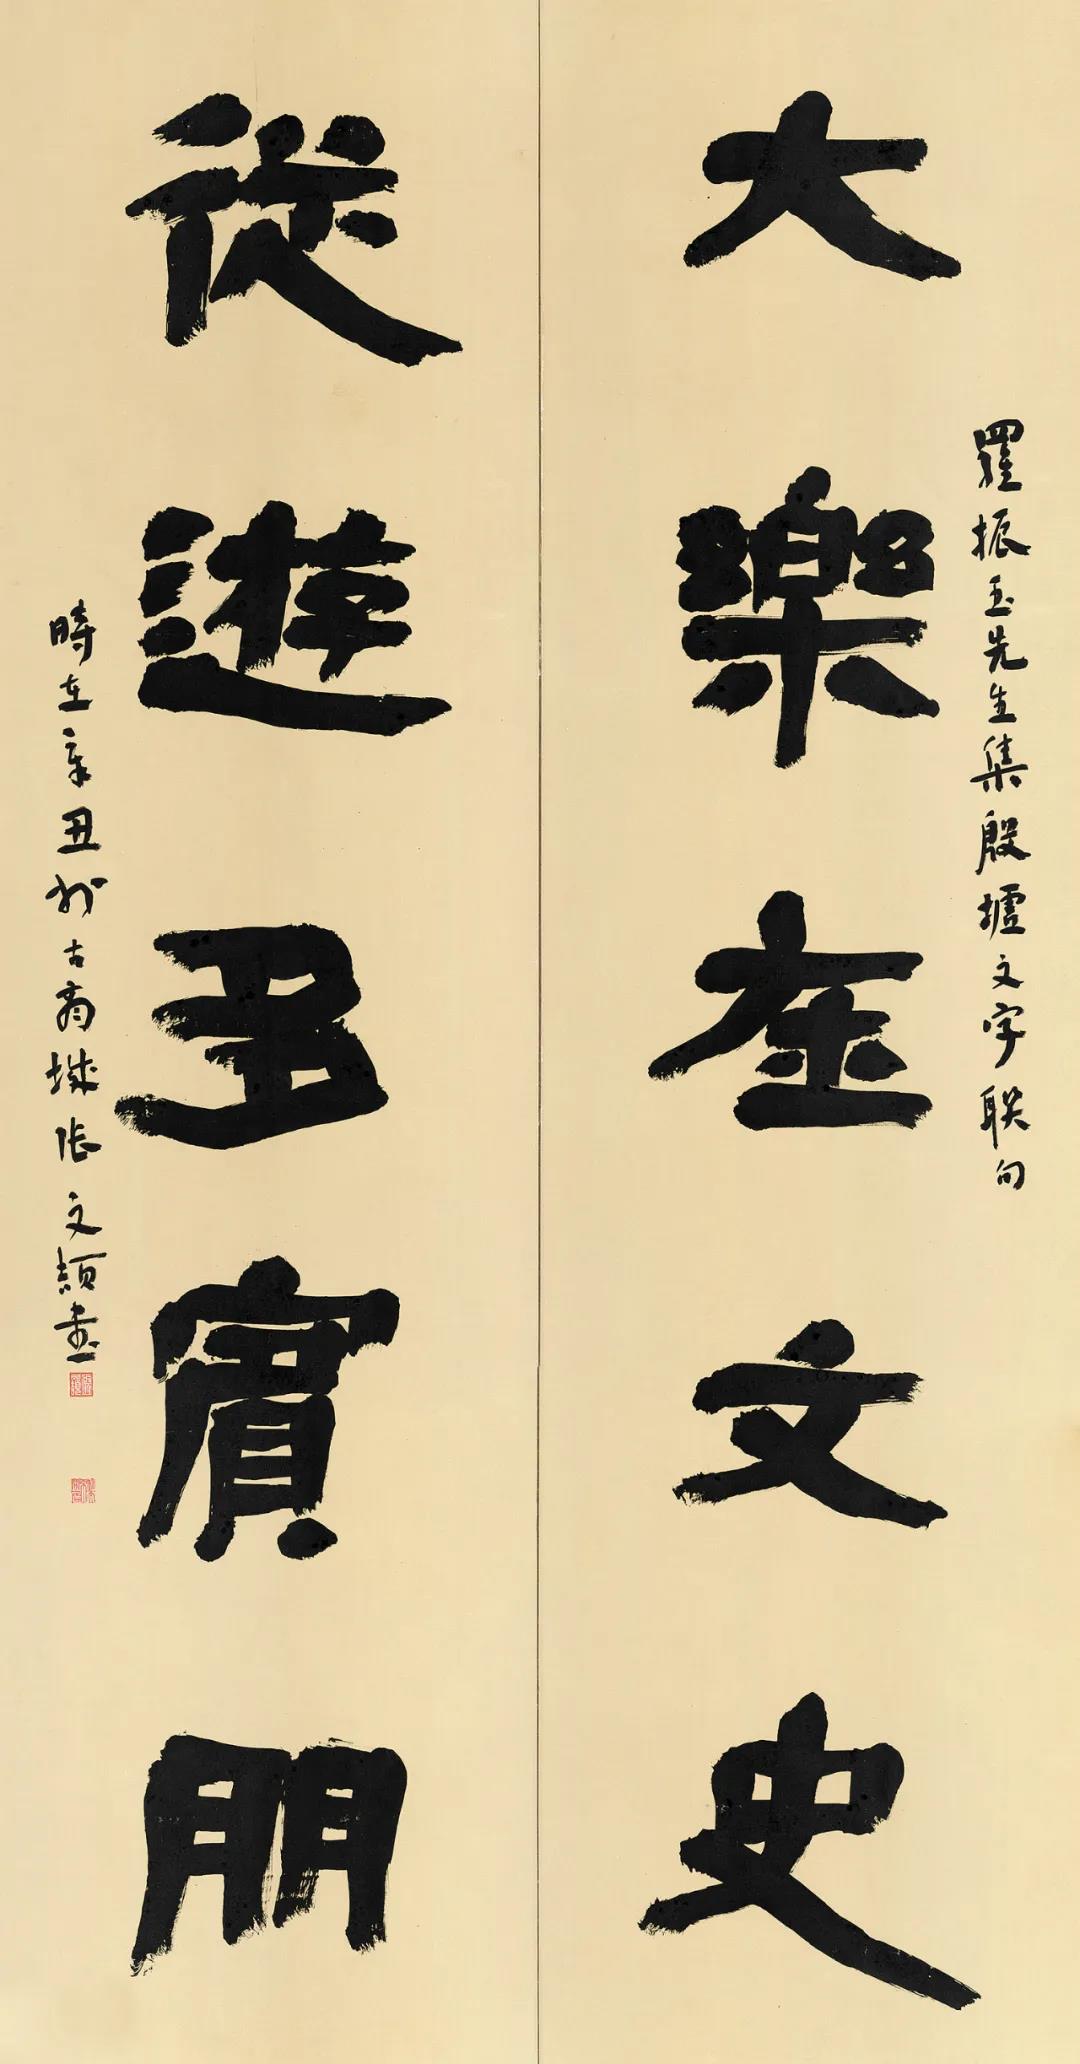 大樂在文史
羅振玉先生集殷墟文字聯句
從遊多賓朋
時在辛丑於古商城張文頡書